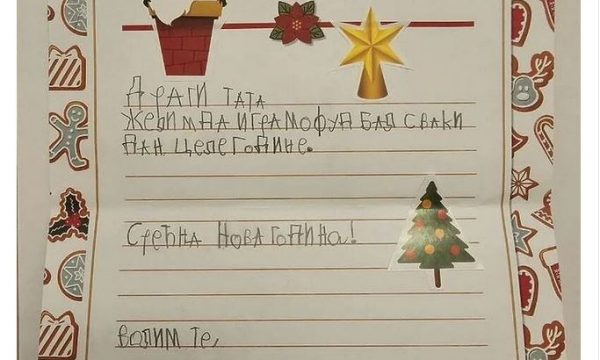 Драги тата
Жеђим да играмо фудбал сваки
дан целе године.
Срећна Нова година!
Волим те,